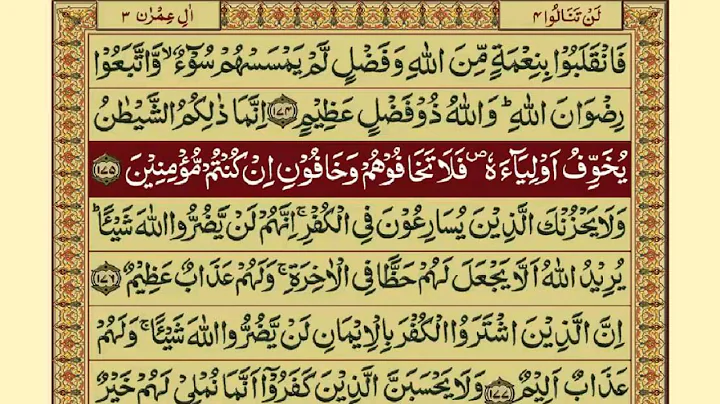 لَنْ تَنَالُوا ۴
اٰلِ عِمْرٰن ۳
فَانْقَلَبُوْا بِنِعْمَةٍ مِّنَ اللّٰهِ وَفَضْلٍ لَّمْ يَمْسَسْهُمْ سُوْٓءٌ ۙ وَّاتَّبَعُوْا
رِضْوَانَ اللّٰهِ ؕ وَاللّٰهُ ذُوْ فَضْلٍ عَظِيْمٍ ﴿۱۷۴﴾ اِنَّمَا ذٰلِكُمُ الشَّيْطٰنُ
يُخَوِّفُ اَوْلِيَآءَهٗ ۪ فَلَا تَخَافُوْهُمْ وَخَافُوْنِ اِنْ كُنْتُمْ مُّؤْمِنِيْنَ ﴿۱۷۵﴾
وَلَا يَحْزُنْكَ الَّذِيْنَ يُسَارِعُوْنَ فِى الْكُفْرِ ۚ اِنَّهُمْ لَنْ يَّضُرُّوا اللّٰهَ شَيْئًا ؕ
يُرِيْدُ اللّٰهُ اَلَّا يَجْعَلَ لَهُمْ حَظًّا فِى الْاٰخِرَةِ ۚ وَلَهُمْ عَذَابٌ عَظِيْمٌ ﴿۱۷۶﴾
اِنَّ الَّذِيْنَ اشْتَرَوُا الْكُفْرَ بِالْاِيْمَانِ لَنْ يَّضُرُّوا اللّٰهَ شَيْئًا ۚ وَلَهُمْ
عَذَابٌ اَلِيْمٌ ﴿۱۷۷﴾ وَلَا يَحْسَبَنَّ الَّذِيْنَ كَفَرُوْٓا اَنَّمَا نُمْلِىْ لَهُمْ خَيْرٌ